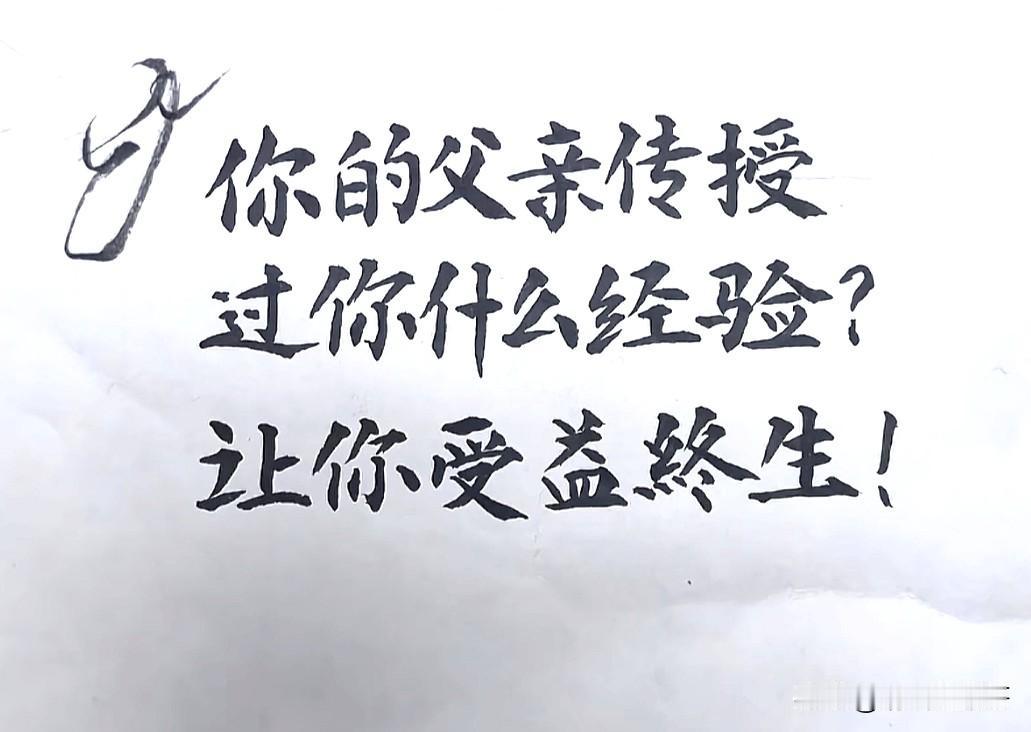 你的父亲传授
过你什么经验？
让你受益終生！